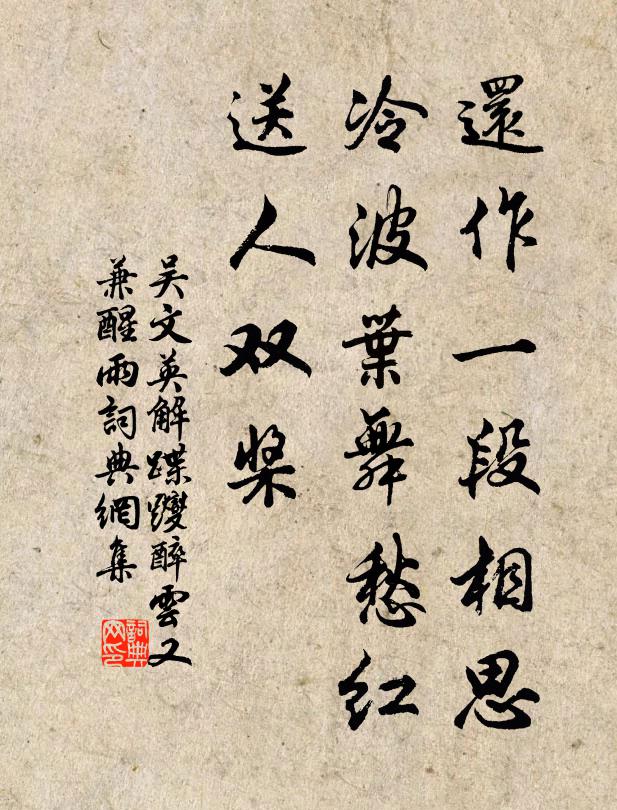 還作一段相思
冷波葉舞愁紅
送人双桨
吴文英解蹀躞醉雲又
兼醒雨詞典網集
詞典
网印